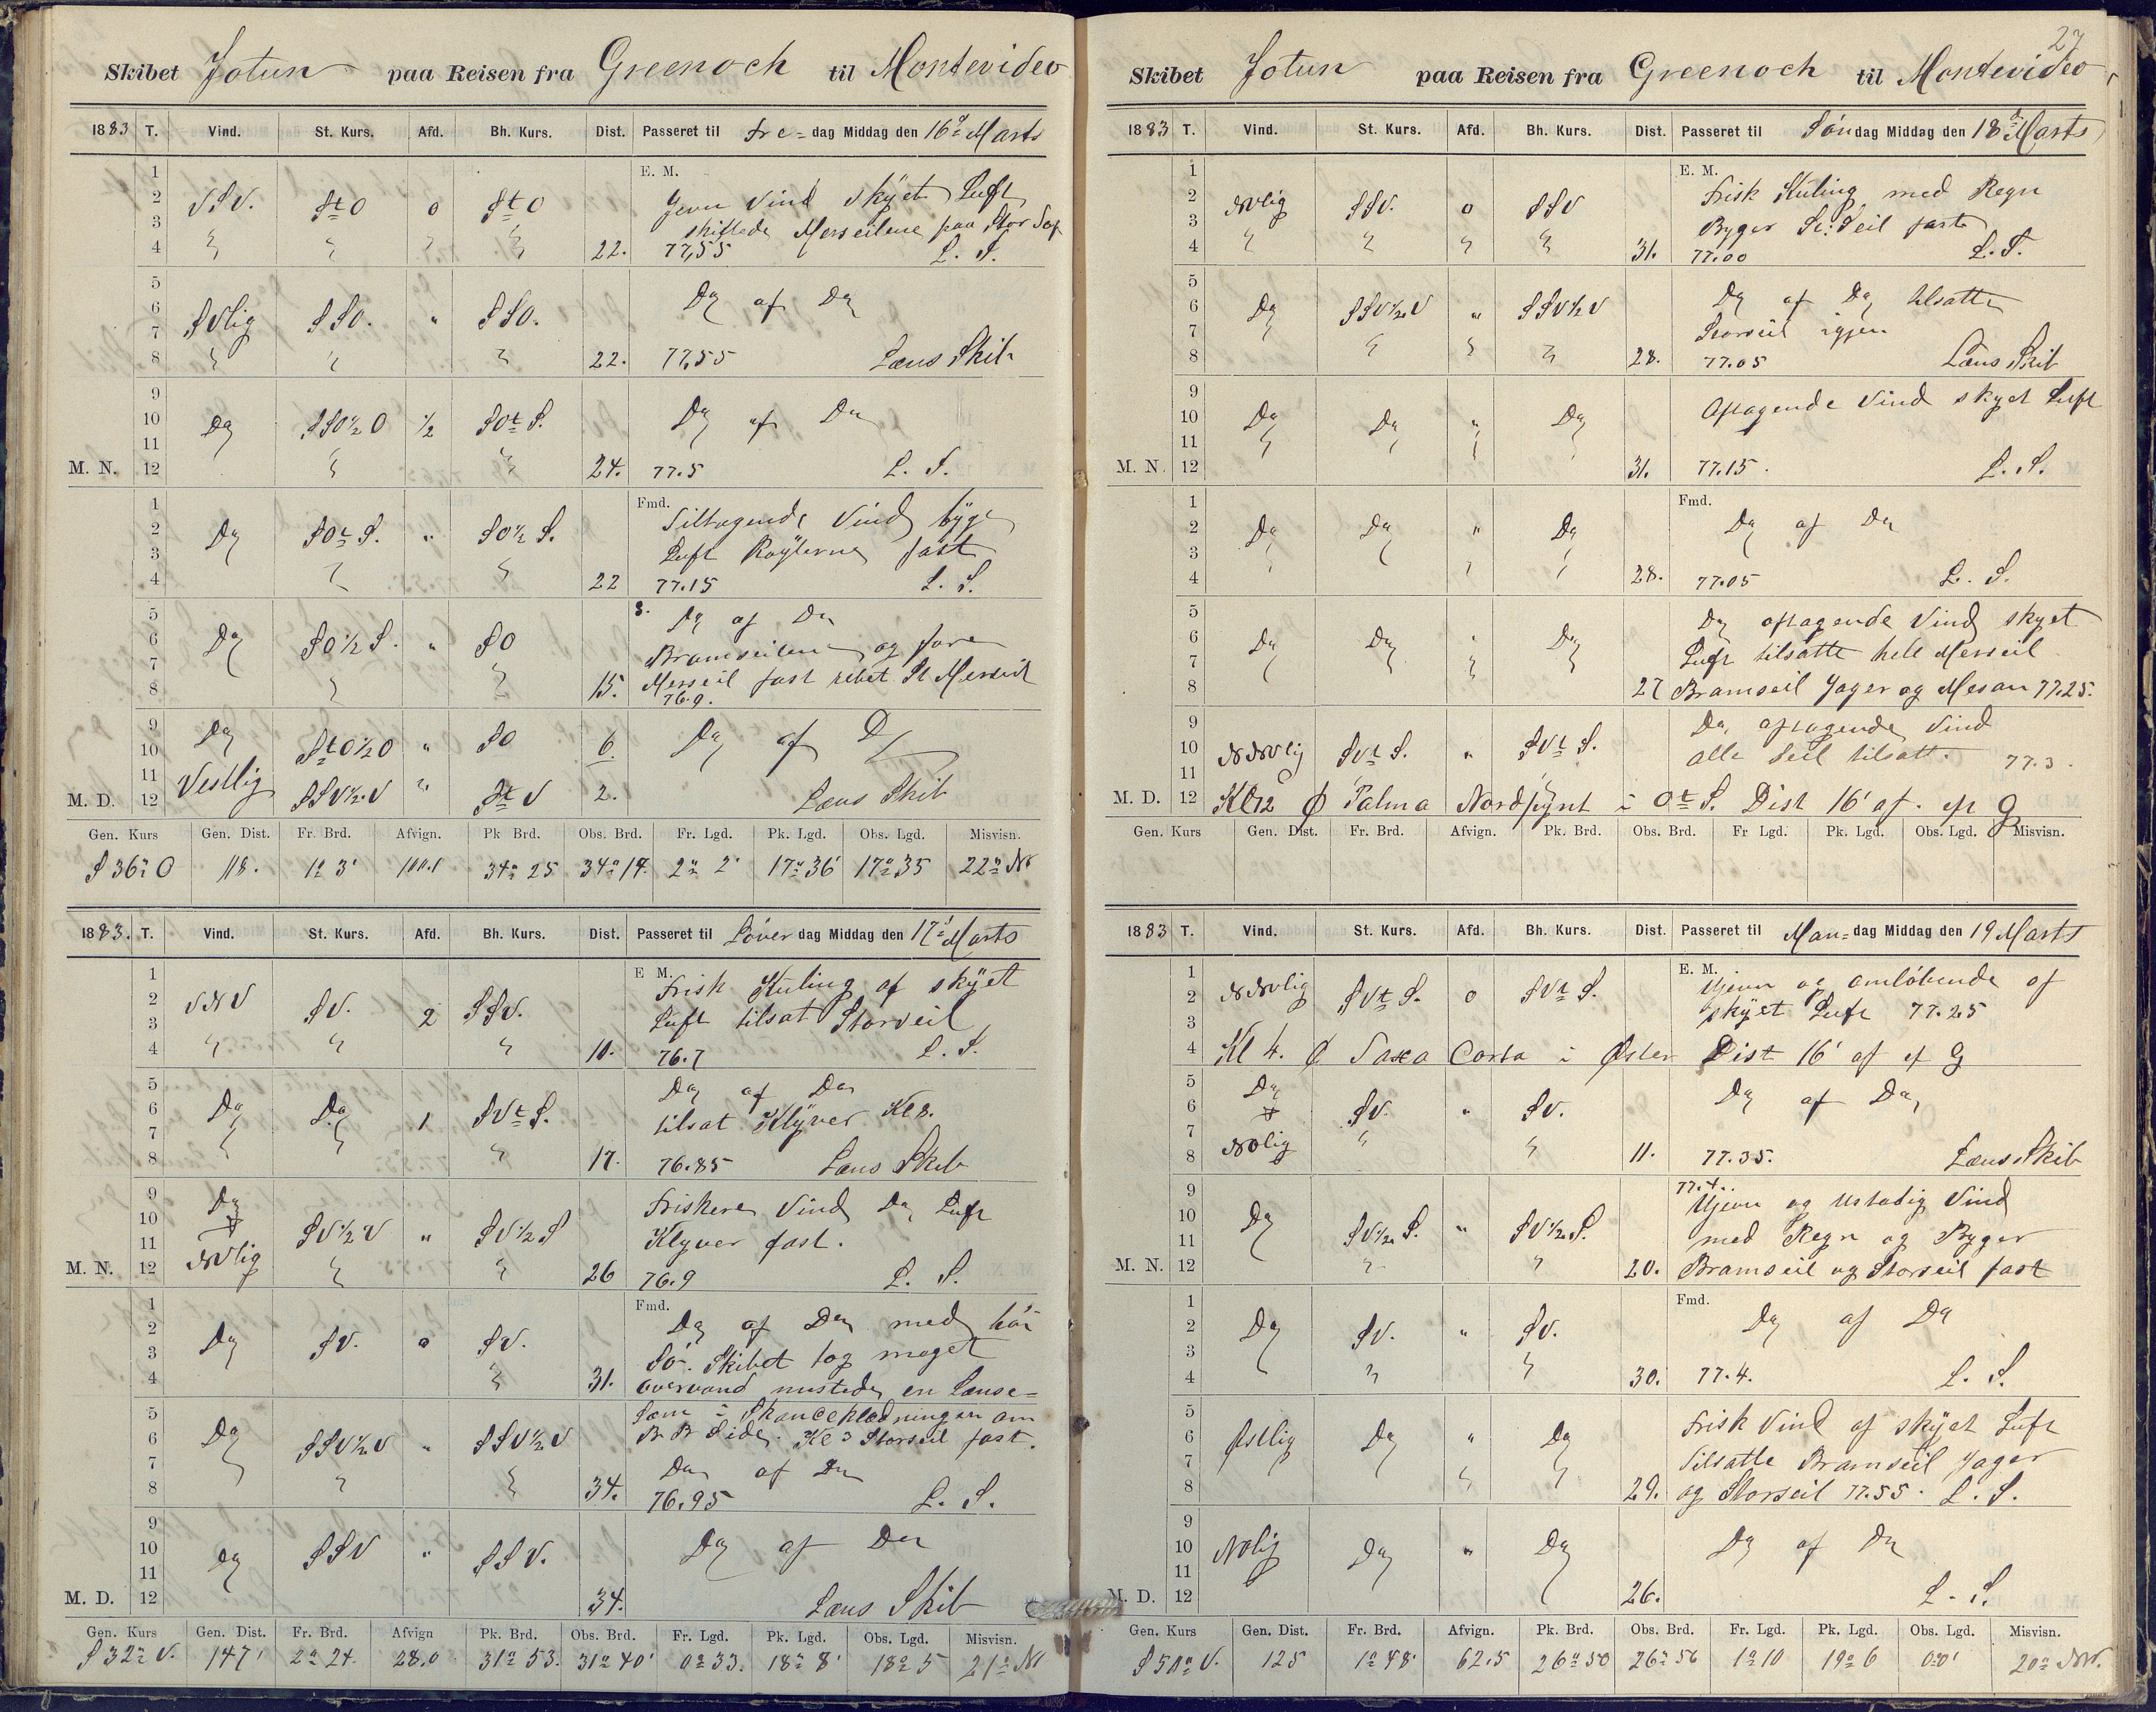 Skibet Jotun paa Reisen fra Greenoch til Montevideo
1883 T. Vind. St. Kurs. Afd. Bh. Kurs. Dist. Passeret til Fre= dag Middag den 16de Marts
1 E. M.
2 VSV. StO 0 StO Jevn Vind skÿet Luft
3 skiftede Merseilene paa Stor
4 22. 77,55 L. S.
5 Do af Do
6 SVlig SSO. " SSO.
7
8 22. 77,55 Læns Skib
9
10 Do SSO½O ½ SOtS. Do af Do
11
M. N. 12 24. 77.5 L. S.
1 Fmd.
2 Do SOtS. " SO½S. Tiltagende Vind bÿge
3 Luft Røÿlerne fast
4 22 77.15 L. S.
5 Do af Do
6 Do SO½S. " SO Bramseilene og fore
7 Merseil fast rebet St Merseil
8 15. 76.9.
9 Do StO½O " SO 6. Do af Do
10
11 Vestlig SSV½V " StV 2.
M. D. 12 Læns Skib
Gen. Kurs Gen. Dist. Fr. Brd. Afvign. Pk Brd. Obs. Brd. Fr. Lgd. Pk. Lgd. Obs. Lgd. Misvisn.
S 36° O 118. 1° 3' 34° 25 34° 14. 2° 2' 17° 36' 17° 35 22° Nv
1883. T. Vind. St. Kurs. Afd. Bh. Kurs. Dist. Passeret til Løver dag Middag den 17d Marts
1 E M.
2 VNV SV. 2 SSV. Frisk Kuling af skÿet
3 Luft tilsat Storseil
4 10. 76.7 L. S.
5 Do af Do
6 Do Do 1 SVtS. tilsat Klÿver Kl 8.
7
8 17. 76.85 Læns Skib
9 Do Friskere Vind Do Luft
10 SV½V " SV½S Klyver fast.
11 NVlig
M. N. 12 26 76.9 L. S.
1 Fmd.
2 Do SV. 0 SV. Do af Do med høi
3 Sø. Skibet tog meget
4 31. overvand mistede en Lænse=
5 Skandseklædningen om
6 Do SSV½V " SSV½V B B Side. Kl 3 Storseil fast.
7 Do af Do
8 34. 76.95 L. S.
9
10 Do SSV " SSV. Do af Do
11
M. D. 12 34. Læns Skib
Gen. Kurs Gen. Dist. Fr. Brd. Afvign Pk. Brd. Obs. Brd. Fr. Lgd. Pk. Lgd. Obs. Lgd. Misvisn.
S 32° V. 147' 2° 24. 28.0 31° 53. 31° 40' 0° 33. 18° 8' 18° 5 21° Nv
27
Skibet Jotun paa Reisen fra Greenoch til Montevideo
1883 T. Vind. St. Kurs. Afd. Bh. Kurs. Dist. Passeret til Søn dag Middag den 18de Marts
1 E. M.
2 NVlig SSV. 0 SSV Frisk Kuling med Regn
3 Byger St. Seil fast
4 31. 77.00 L. S.
5
6 Do SSV½V " SSV½V Do af Do tilsatte
7 Storseil igjen
8 28. 77.05 Læns Skib
9
10 Do Do " Do Aftagende Vind skyet Luft
11
M. N. 12 31. 77.15. L. S.
1 Fmd.
2 Do Do " Do Do af Do
3
4 28. 77.05 L. S.
5 Do aftagende Vind skyet
6 Do Do " Do Luft tilsatte hele Merseil
7
8 27 Bramseil Jager og Mesan 77.25.
9 Do aftagende Vind
10 NNVlig SVtS. " SVtS. alle Seil tilsatt. 77.3.
11
M. D. 12 Kl 12 Palma Nordpÿnt i OtS. Dist 16' af. ef G
Gen. Kurs Gen. Dist. Fr. Brd. Afvign. Pk. Brd. Obs. Brd. Fr Lgd. Pk. Lgd. Obs. Lgd Misvisn.
1883 T. Vind. St. Kurs. Afd. Bh. Kurs. Dist. Passeret til Man= dag Middag den 19 Marts
1 E. M. Ujevn og omløbende af
2 NNVlig SVtS. 0 SVtS. skÿet Luft 77.25
3
4 Kl 4. i Øster Dist 16' af ef G
5 Do Do af Do
6 SV. " SV.
7 NOlig
8 11. 77.35. Læns Skib
9 77.4. Ujevn og ustadig Vind
10 Do SV½S. " SV½S. med Regn og Byger
11
M. N. 12 20. Bramseil og Storseil fast
1 Fmd.
2 Do SV. " SV. Do af Do
3
4 30. 77.4. L. S.
5 Frisk Vind af skÿet Luft
6 Østlig Do " Do Tilsatte Bramseil Jager
7
8 29. og Storseil 77.55. L. S.
9
10 NOlig Do " Do Do af Do
11
M. D. 12 26. L. S.
Gen. Kurs Gen. Dist. Fr. Brd. Afvign. Pk. Brd. Obs. Brd. Fr Lgd. Pk. Lgd. Obs. Lgd. Misvisn.
S 50° V. 125 1° 48' 62.5 26° 50 26° 56 1° 10 19° 6 0°0' 20° NV.